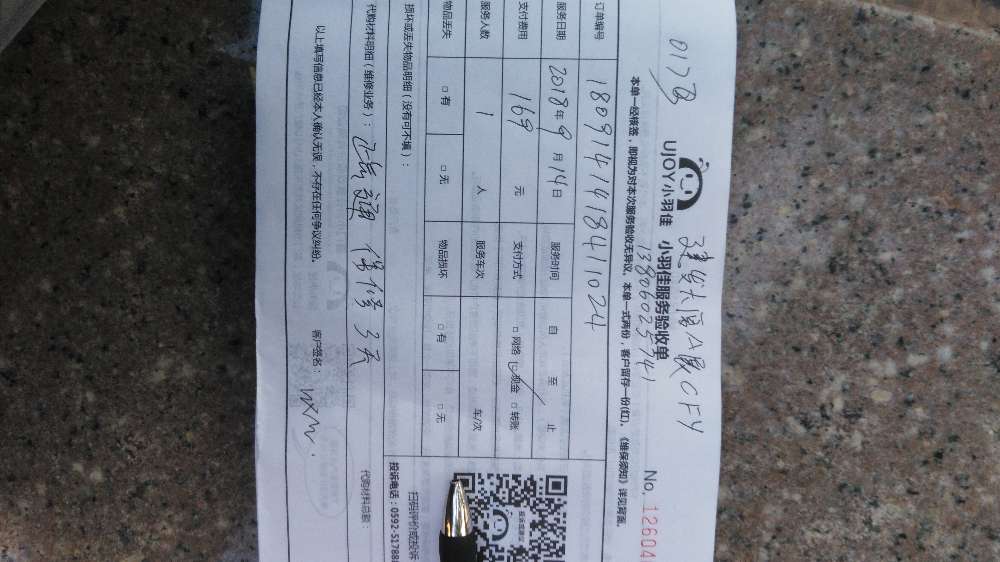 UJOY小羽佳 小羽佳服务验收单 No. 12604
13806025741
本单一经核签，即视为对本次服务验收无异议，本单一式两份，客户留存一份(红)。《维保须知》详见背面。
订单编号 180914141841 1024
服务日期 2018年9月15日 服务时间 自 至 止
支付费用 169 元 支付方式 □网络 ☑现金 □转账
服务人数 1 人 服务车次 车/次
物品丢失 □有 □无 物品损坏 □有 □无
损坏或丢失物品明细（没有可不填）：
代购材料明细（维修业务）： 疏通 保修3天
代购材料总额：
以上填写信息已经本人确认无误，不存在任何争议纠纷。 客户签名：
投诉或建议
扫码评价或投诉
投诉电话：0592-517888